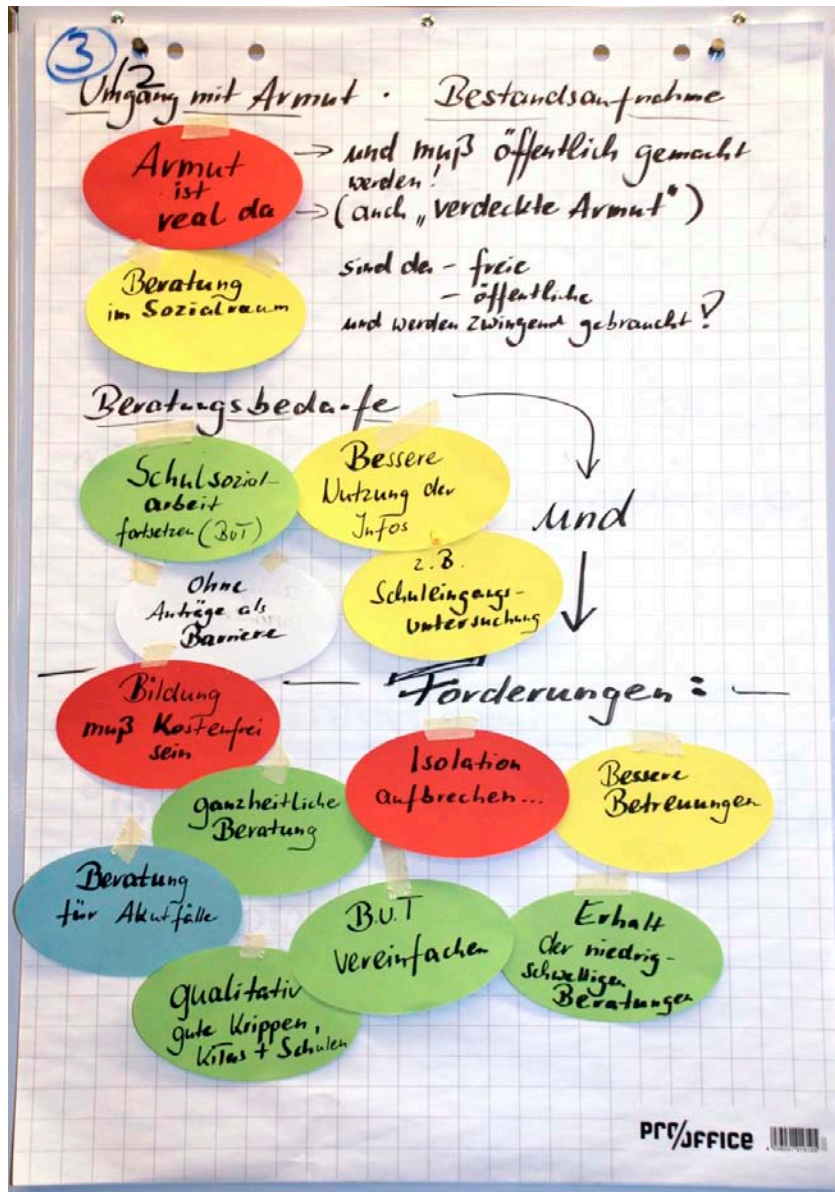 3
/2
Umgang mit Armut · Bestandsaufnahme
Armut
ist
real da
→ und muß öffentlich gemacht
werden!
→ (auch „verdeckte Armut")
Beratung
im Sozialraum
sind da - freie
- öffentliche
und werden zwingend gebraucht!
Beratungsbedarfe
Schulsozial-
arbeit
fortsetzen (BuT)
Bessere
Nutzung der
Infos
und
Ohne
Anträge als
Barriere
z.B.
Schuleingangs-
untersuchung
Forderungen:
Bildung
muß Kostenfrei
sein
Isolation
aufbrechen...
Bessere
Betreuungen
ganzheitliche
Beratung
Beratung
für Akutfälle
B.u.T
vereinfachen
Erhalt
der niedrig-
schwelligen
Beratungen
Qualitativ
gute Krippen,
KiTas + Schulen
PRO/OFFICE